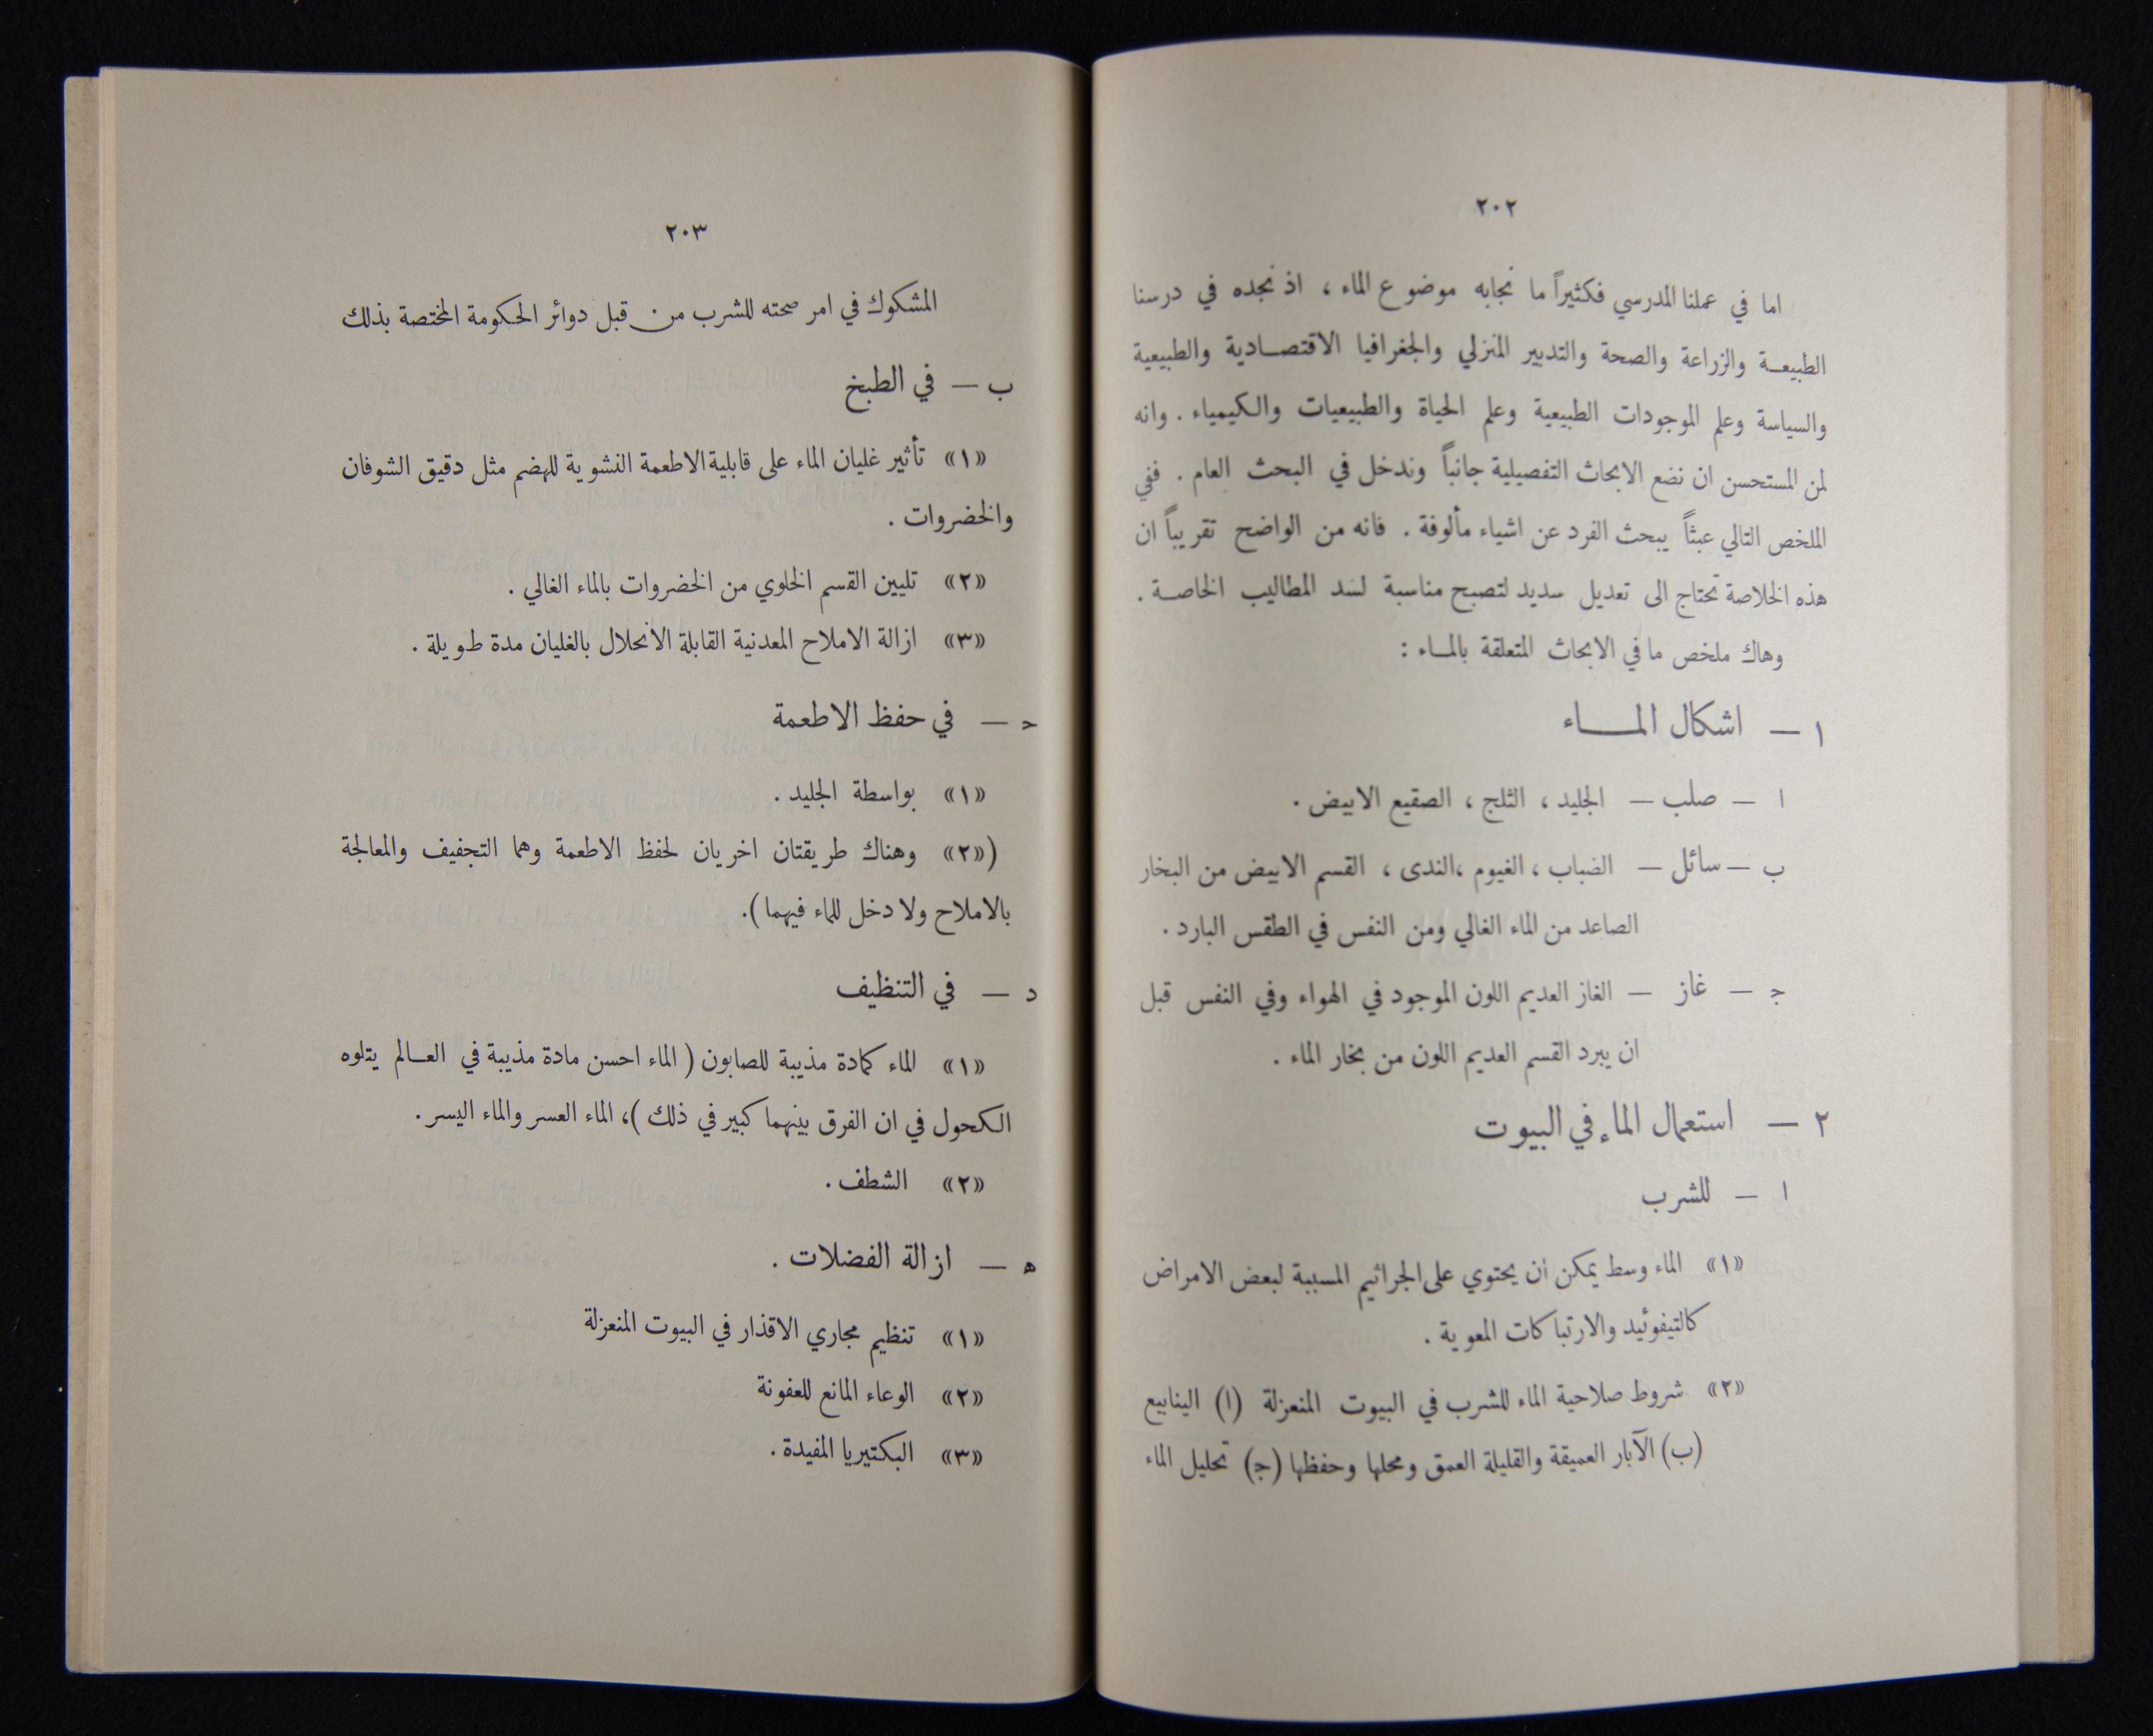 ٢٠٢
اما في عملنا المدرسي فكثيراً ما نجابه موضوع الماء ، اذ نجده في درسنا
الطبيعـة والزراعة والصحة والتدبير المنزلي والجغرافيا الاقتصـادية والطبيعية
والسياسة وعلم الموجودات الطبيعية وعلم الحياة والطبيعيات والكيمياء . وانه
لمن المستحسن ان نضع الابحاث التفصيلية جانباً وندخل في البحث العام . ففي
الملخص التالي عبثاً يبحث الفرد عن اشياء مألوفة . فانه من الواضح تقريباً ان
هذه الخلاصة تحتاج الى تعديل سديد لتصبح مناسبة لسد المطاليب الخاصـة .
وهاك ملخص ما في الابحاث المتعلقة بالمـاء :
١ — اشكال المـــاء
ا — صلب — الجليد ، الثلج ، الصقيع الابيض .
ب — سائل — الضباب ، الغيوم ،الندى ، القسم الابيض من البخار
الصاعد من الماء الغالي ومن النفس في الطقس البارد .
ج — غاز — الغاز العديم اللون الموجود في الهواء وفي النفس قبل
ان يبرد القسم العديم اللون من بخار الماء .
٢ — استعمال الماء في البيوت
ا — للشرب
«١» الماء وسط يمكن ان يحتوي على الجراثيم المسببة لبعض الامراض
كالتيفوئيد والارتباكات المعوية .
«٢» شروط صلاحية الماء للشرب في البيوت المنعزلة (ا) الينابيع
(ب) الآبار العميقة والقليلة العمق ومحلها وحفظها (ج) تحليل الماء
٢٠٣
المشكوك في امر صحته للشرب من قبل دوائر الحكومة المختصة بذلك
ب — في الطبخ
«١» تأثير غليان الماء على قابلية الاطعمة النشوية للهضم مثل دقيق الشوفان
والخضروات .
«٢» تليين القسم الخلوي من الخضروات بالماء الغالي .
«٣» ازالة الاملاح المعدنية القابلة الانحلال بالغليان مدة طويلة .
ح — في حفظ الاطعمة
«١» بواسطة الجليد .
(«٢» وهناك طريقتان اخريان لحفظ الاطعمة وهما التجفيف والمعالجة
بالاملاح ولا دخل للماء فيهما ).
د — في التنظيف
«١» الماء كمادة مذيبة للصابون ( الماء احسن مادة مذيبة في العـالم يتلوه
الكحول في ان الفرق بينهما كبير في ذلك )، الماء العسر والماء اليسر .
«٢» الشطف .
ه — ازالة الفضلات .
«١» تنظيم مجاري الاقذار في البيوت المنعزلة
«٢» الوعاء المانع للعفونة
«٣» البكتيريا المفيدة .